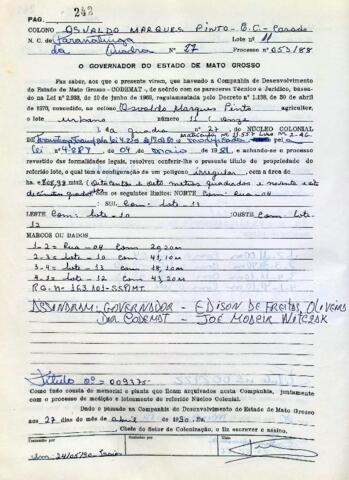 PAG. 242
COLONO OSVALDO MARQUES PINTO - B.C. - Casado
N. C. de Paranatinga Lote n° 11
da Quadra N° 27 Processo n° 053/88
O GOVERNADOR DO ESTADO DE MATO GROSSO
Faz saber, aos que a presente virem, que havendo a Companhia de Desenvolvimento
do Estado de Mato Grosso - CODEMAT -, de acôrdo com os pareceres Técnico e Jurídico, baseados
na Lei nº 2.988, de 10 de junho de 1969, regulamentada pelo Decreto nº 1.138, de 20 de abril
de 1970, concedido, ao colono Osvaldo Marques Pinto agricultor,
o lote urbano 11 onze
da quadra n° 27 do NÚCLEO COLONIAL
de Paranatinga Matricula nº 11.557 e modificada pela
lei nº 4.987 de 04 de maio de 1981, e achando-se o processo
revestido das formalidades legais, resolveu conferir-lhe o presente título de propriedade
referido lote, o qual tem a configuração de um polígono irregular, com a área de
ha (Oitocentos e oito metros quadrados e noventa e oito
decimetros quadrados) os seguintes limites: NORTE Com: Rua - 04
SUL Com: lote - 13
LESTE Com: lote - 10 OESTE Com: lote
12
MARCOS OU DADOS
1 - 2 = Rua - 04 Com 20,20m
2 - 3 = lote - 10 Com 41,10m
3 - 4 = lote - 13 Com 18,20m
4 - 1 = lote - 12 Com 43,20m
R.G. Nº 163.101-SSPMT
ASSINARAM: GOVERNADOR - EDISON DE FREITAS OLIVEIRA
Dir. CODEMAT - JOE MOACIR WITCZAK
Título nº = 009375
Como tudo consta do memorial e planta que ficam arquivados nesta Companhia, juntamente
com o processo de medição e loteamento do referido Núcleo Colonial.
Dado e passado na Companhia de Desenvolvimento do Estado de Mato Grosso
aos 27 dias do mês de abril de 1990.
Chefe do Setor de Colonização, o fiz escrever e assino.
Em 24/05/90